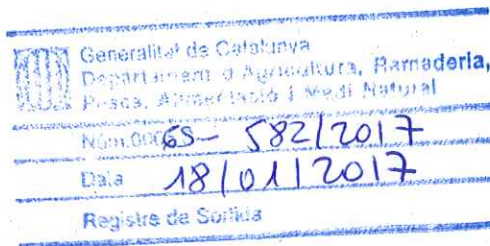 Generalitat de Catalunya
Departament d'Agricultura, Ramaderia,
Pesca, Alimentació i Medi Natural
Núm. 0006S- 582/2017
Data 18/01/2017
Registre de Sortida